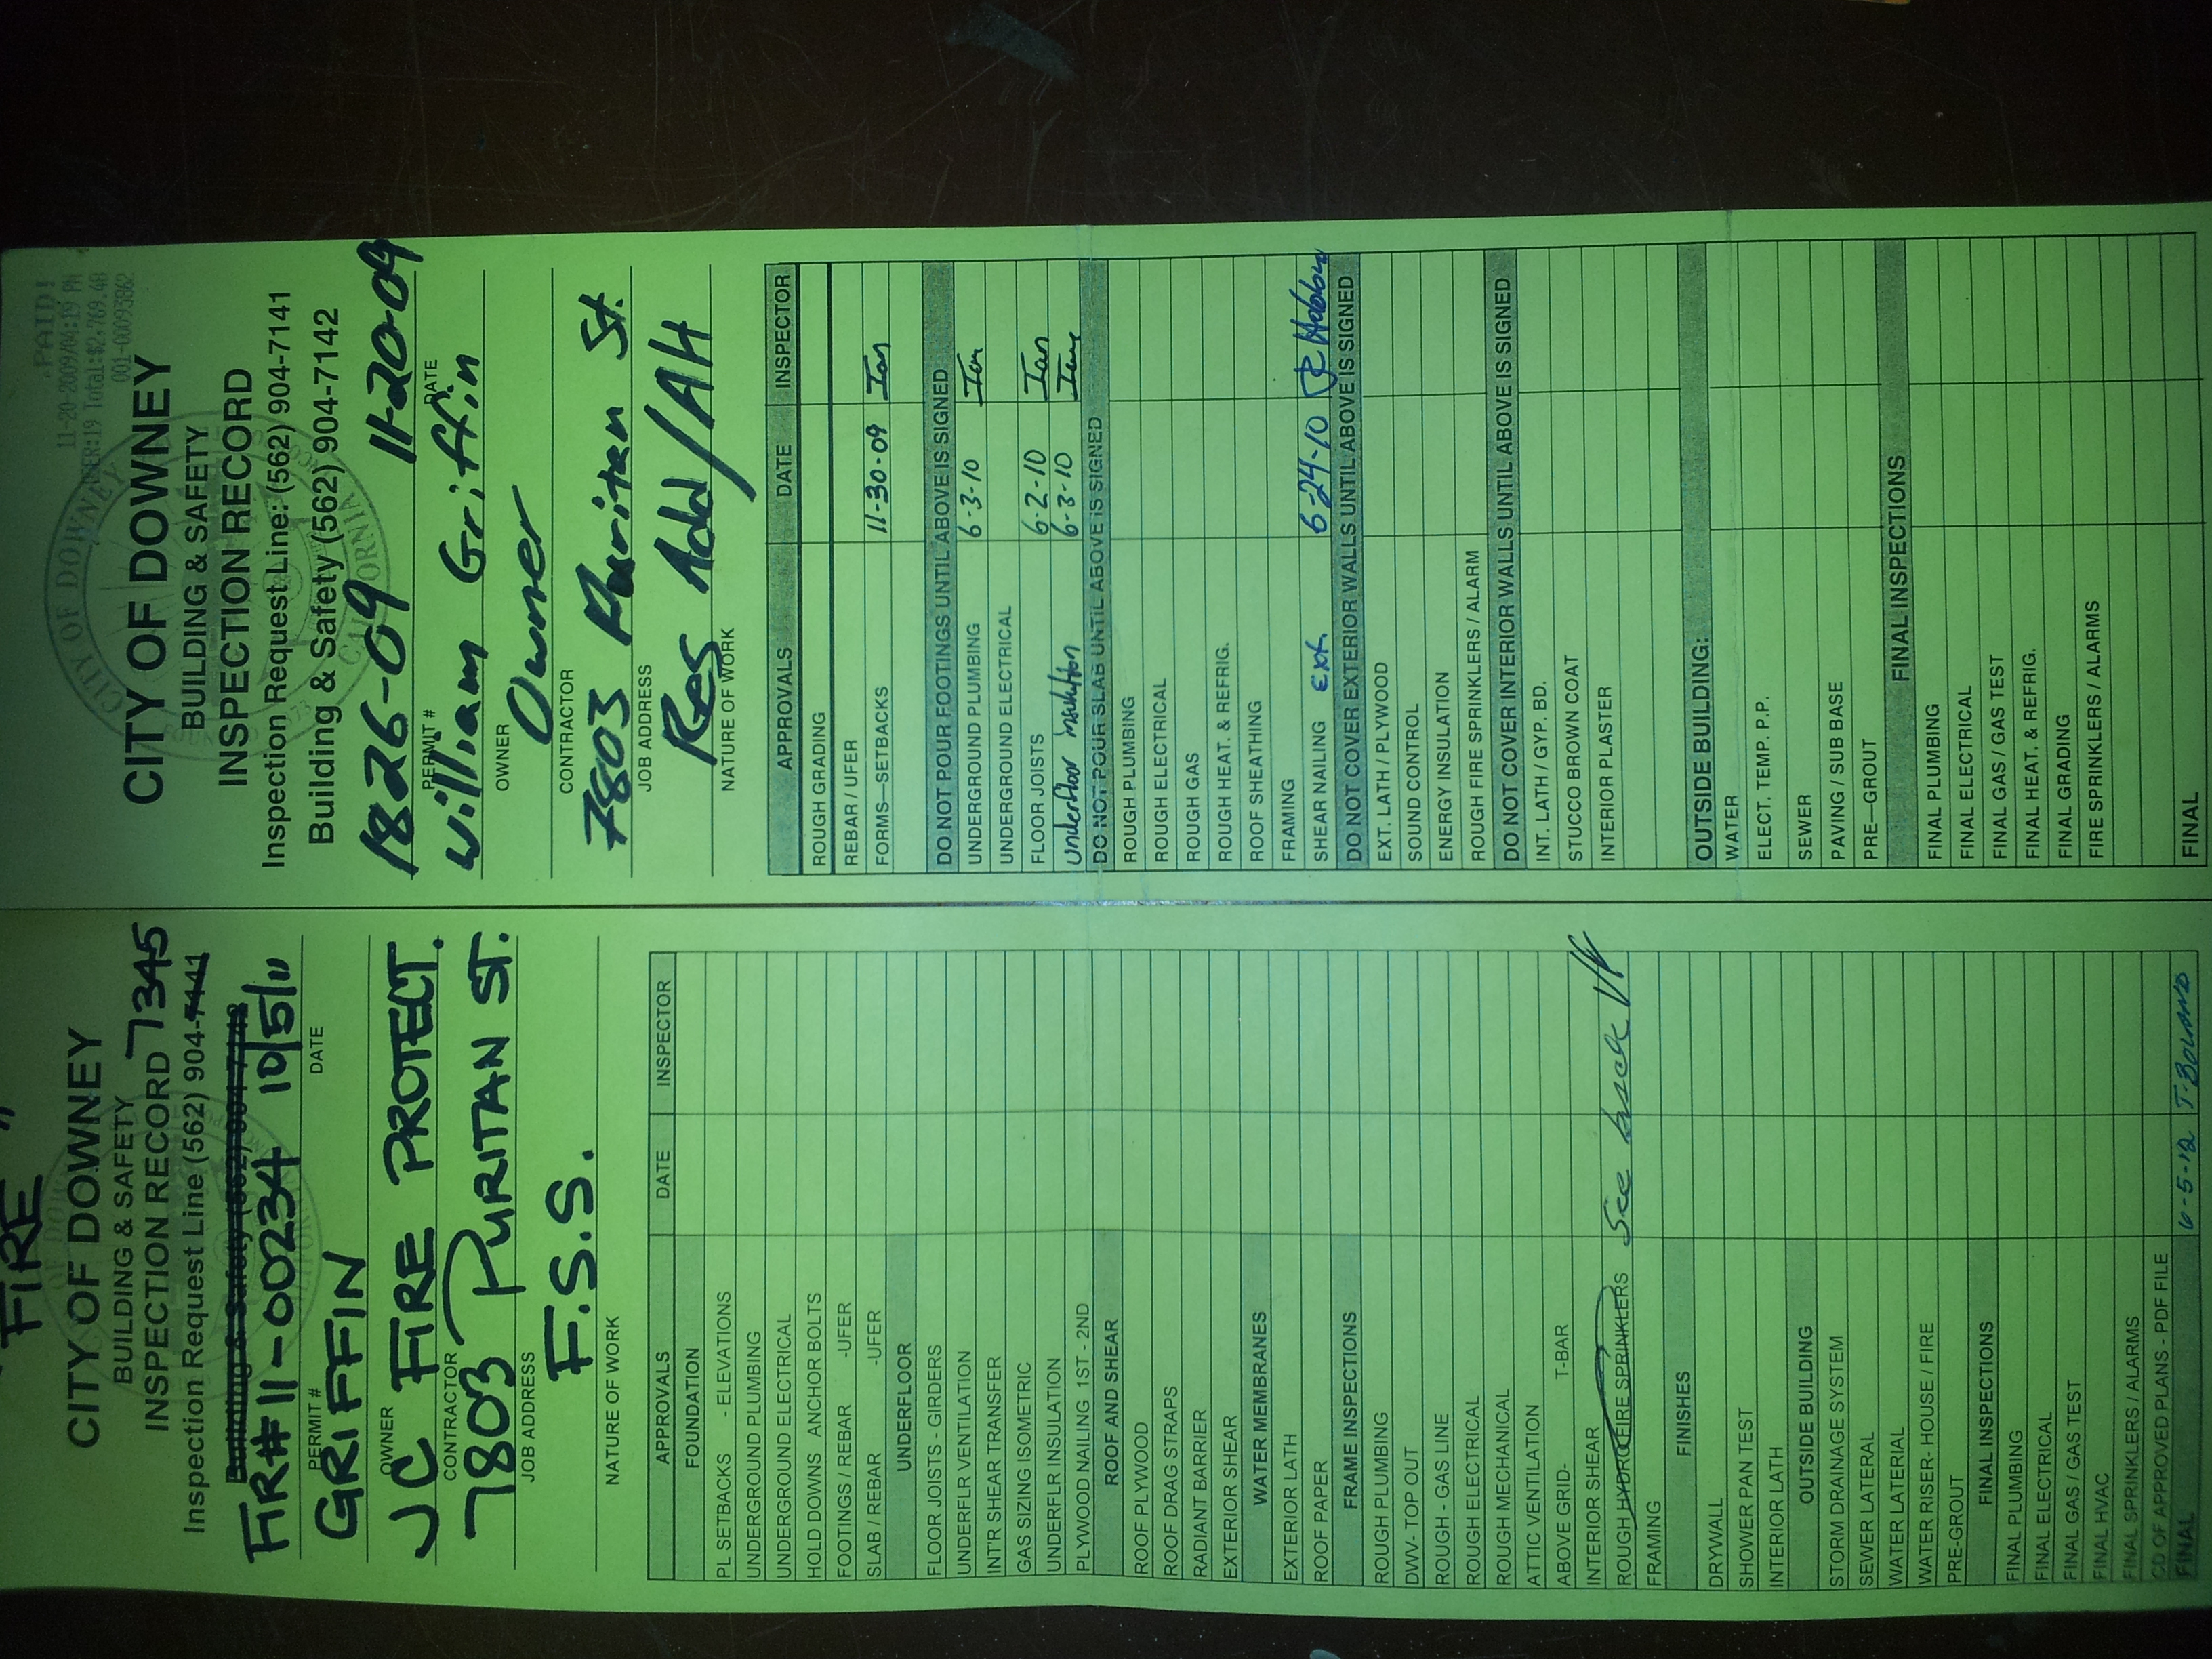 "FIRE"
CITY OF DOWNEY
BUILDING & SAFETY
INSPECTION RECORD 7345
Inspection Request Line (562) 904-7141
Building & Safety (562) 904-7142
FIR# 11-00234 10/5/11
PERMIT # DATE
GRIFFIN
OWNER
JC FIRE PROTECT.
CONTRACTOR
7803 PURITAN ST.
JOB ADDRESS
F.S.S.
NATURE OF WORK
APPROVALS DATE INSPECTOR
FOUNDATION
PL SETBACKS - ELEVATIONS
UNDERGROUND PLUMBING
UNDERGROUND ELECTRICAL
HOLD DOWNS ANCHOR BOLTS
FOOTINGS / REBAR -UFER
SLAB / REBAR -UFER
UNDERFLOOR
FLOOR JOISTS - GIRDERS
UNDERFLR VENTILATION
INT'R SHEAR TRANSFER
GAS SIZING ISOMETRIC
UNDERFLR INSULATION
PLYWOOD NAILING 1ST - 2ND
ROOF AND SHEAR
ROOF PLYWOOD
ROOF DRAG STRAPS
RADIANT BARRIER
EXTERIOR SHEAR
WATER MEMBRANES
EXTERIOR LATH
ROOF PAPER
FRAME INSPECTIONS
ROUGH PLUMBING
DWV - TOP OUT
ROUGH - GAS LINE
ROUGH ELECTRICAL
ROUGH MECHANICAL
ATTIC VENTILATION
ABOVE GRID- T-BAR
INTERIOR SHEAR
ROUGH HYDRO FIRE SPRINKLERS See back
FRAMING
FINISHES
DRYWALL
SHOWER PAN TEST
INTERIOR LATH
OUTSIDE BUILDING
STORM DRAINAGE SYSTEM
SEWER LATERAL
WATER LATERIAL
WATER RISER - HOUSE / FIRE
PRE-GROUT
FINAL INSPECTIONS
FINAL PLUMBING
FINAL ELECTRICAL
FINAL GAS / GAS TEST
FINAL HVAC
FINAL SPRINKLERS / ALARMS
CD OF APPROVED PLANS - PDF FILE
FINAL 6-5-12 T. BOLAND
PAID!
11-20-2009/04:19 PM
USER:19 Total:$2,769.48
001-00093862
CITY OF DOWNEY
CALIFORNIA
CITY OF DOWNEY
BUILDING & SAFETY
INSPECTION RECORD
Inspection Request Line: (562) 904-7141
Building & Safety (562) 904-7142
1826-09 11-20-09
PERMIT # DATE
William Griffin
OWNER
Owner
CONTRACTOR
7803 Puritan St.
JOB ADDRESS
Res Add/Alt
NATURE OF WORK
APPROVALS DATE INSPECTOR
ROUGH GRADING
REBAR / UFER
FORMS—SETBACKS 11-30-09 Ian
DO NOT POUR FOOTINGS UNTIL ABOVE IS SIGNED
UNDERGROUND PLUMBING 6-3-10 Ian
UNDERGROUND ELECTRICAL
FLOOR JOISTS 6-2-10 Ian
Underfloor insulation 6-3-10 Ian
DO NOT POUR SLAB UNTIL ABOVE IS SIGNED
ROUGH PLUMBING
ROUGH ELECTRICAL
ROUGH GAS
ROUGH HEAT. & REFRIG.
ROOF SHEATHING
FRAMING
SHEAR NAILING Ext. 6-24-10
DO NOT COVER EXTERIOR WALLS UNTIL ABOVE IS SIGNED
EXT. LATH / PLYWOOD
SOUND CONTROL
ENERGY INSULATION
ROUGH FIRE SPRINKLERS / ALARM
DO NOT COVER INTERIOR WALLS UNTIL ABOVE IS SIGNED
INT. LATH / GYP. BD.
STUCCO BROWN COAT
INTERIOR PLASTER
OUTSIDE BUILDING:
WATER
ELECT. TEMP. P.P.
SEWER
PAVING / SUB BASE
PRE—GROUT
FINAL INSPECTIONS
FINAL PLUMBING
FINAL ELECTRICAL
FINAL GAS / GAS TEST
FINAL HEAT. & REFRIG.
FINAL GRADING
FIRE SPRINKLERS / ALARMS
FINAL